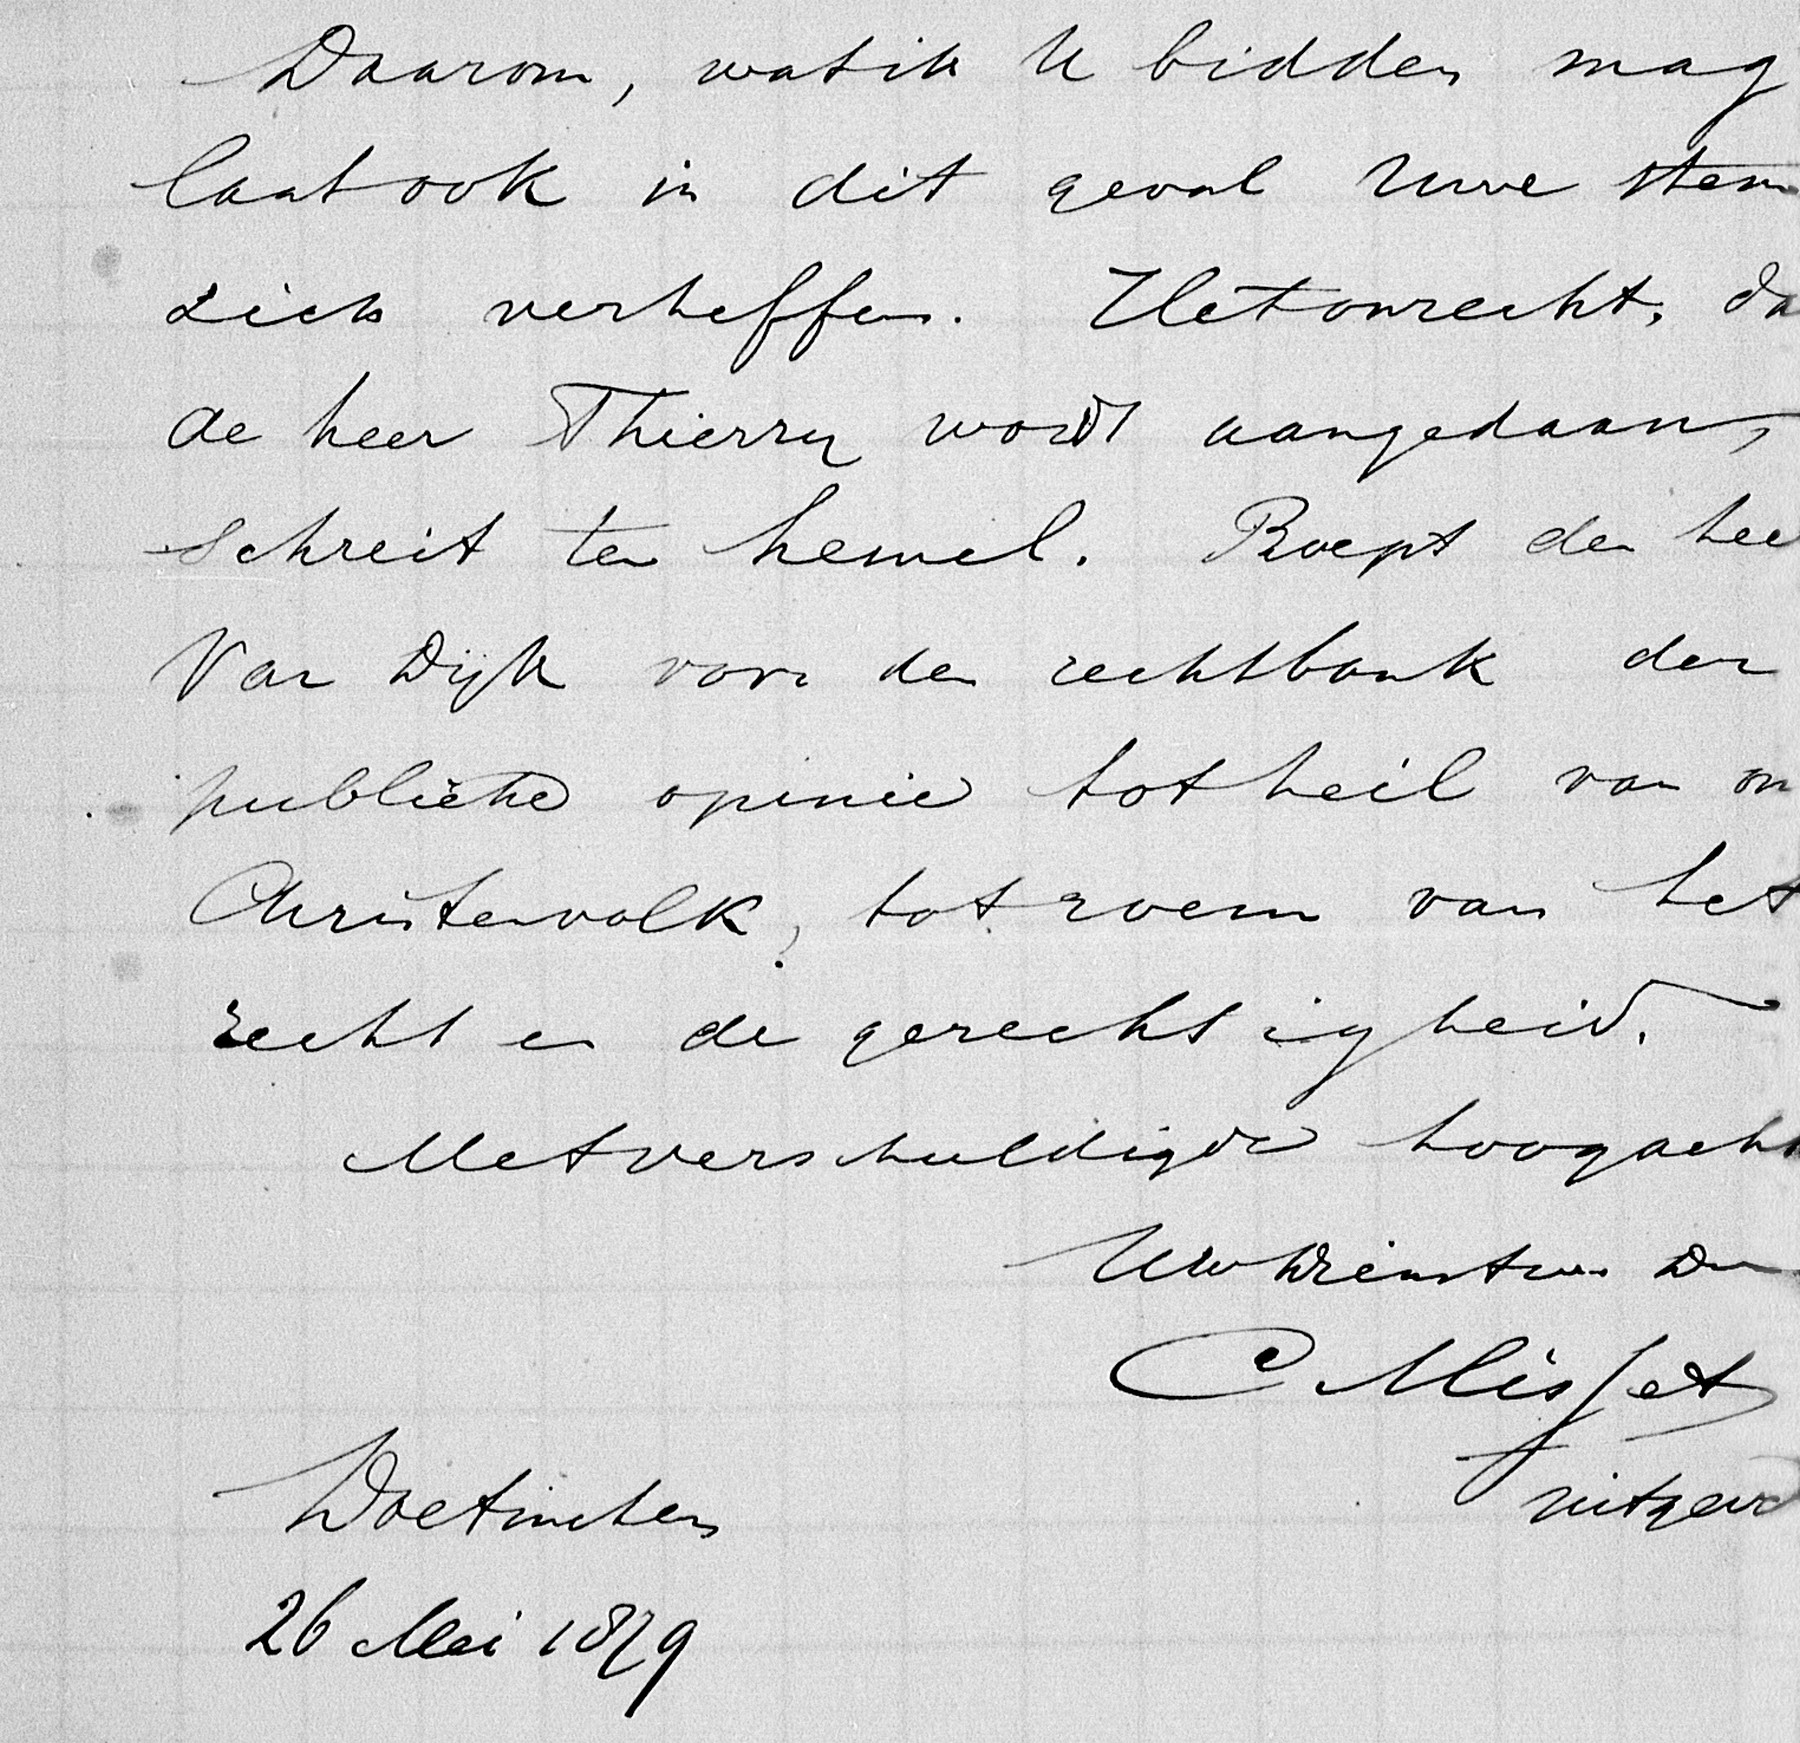 Daarom, wat ik U bidden mag
laat ook in dit geval Uwe stem
zich verheffen. Het onrecht, da
de heer Thierry wordt aangedaan,
schreit ten hemel. Roept den hee
Van Dijk voor de rechtbank der
publieke opinie tot heil van on
Christenvolk, tot roem van het
recht en de gerechtigheid.
Met verschuldigde hoogacht
Uw Dienstw. Dn
C Misset
uitgev
Doetinchem
26 Mei 1879